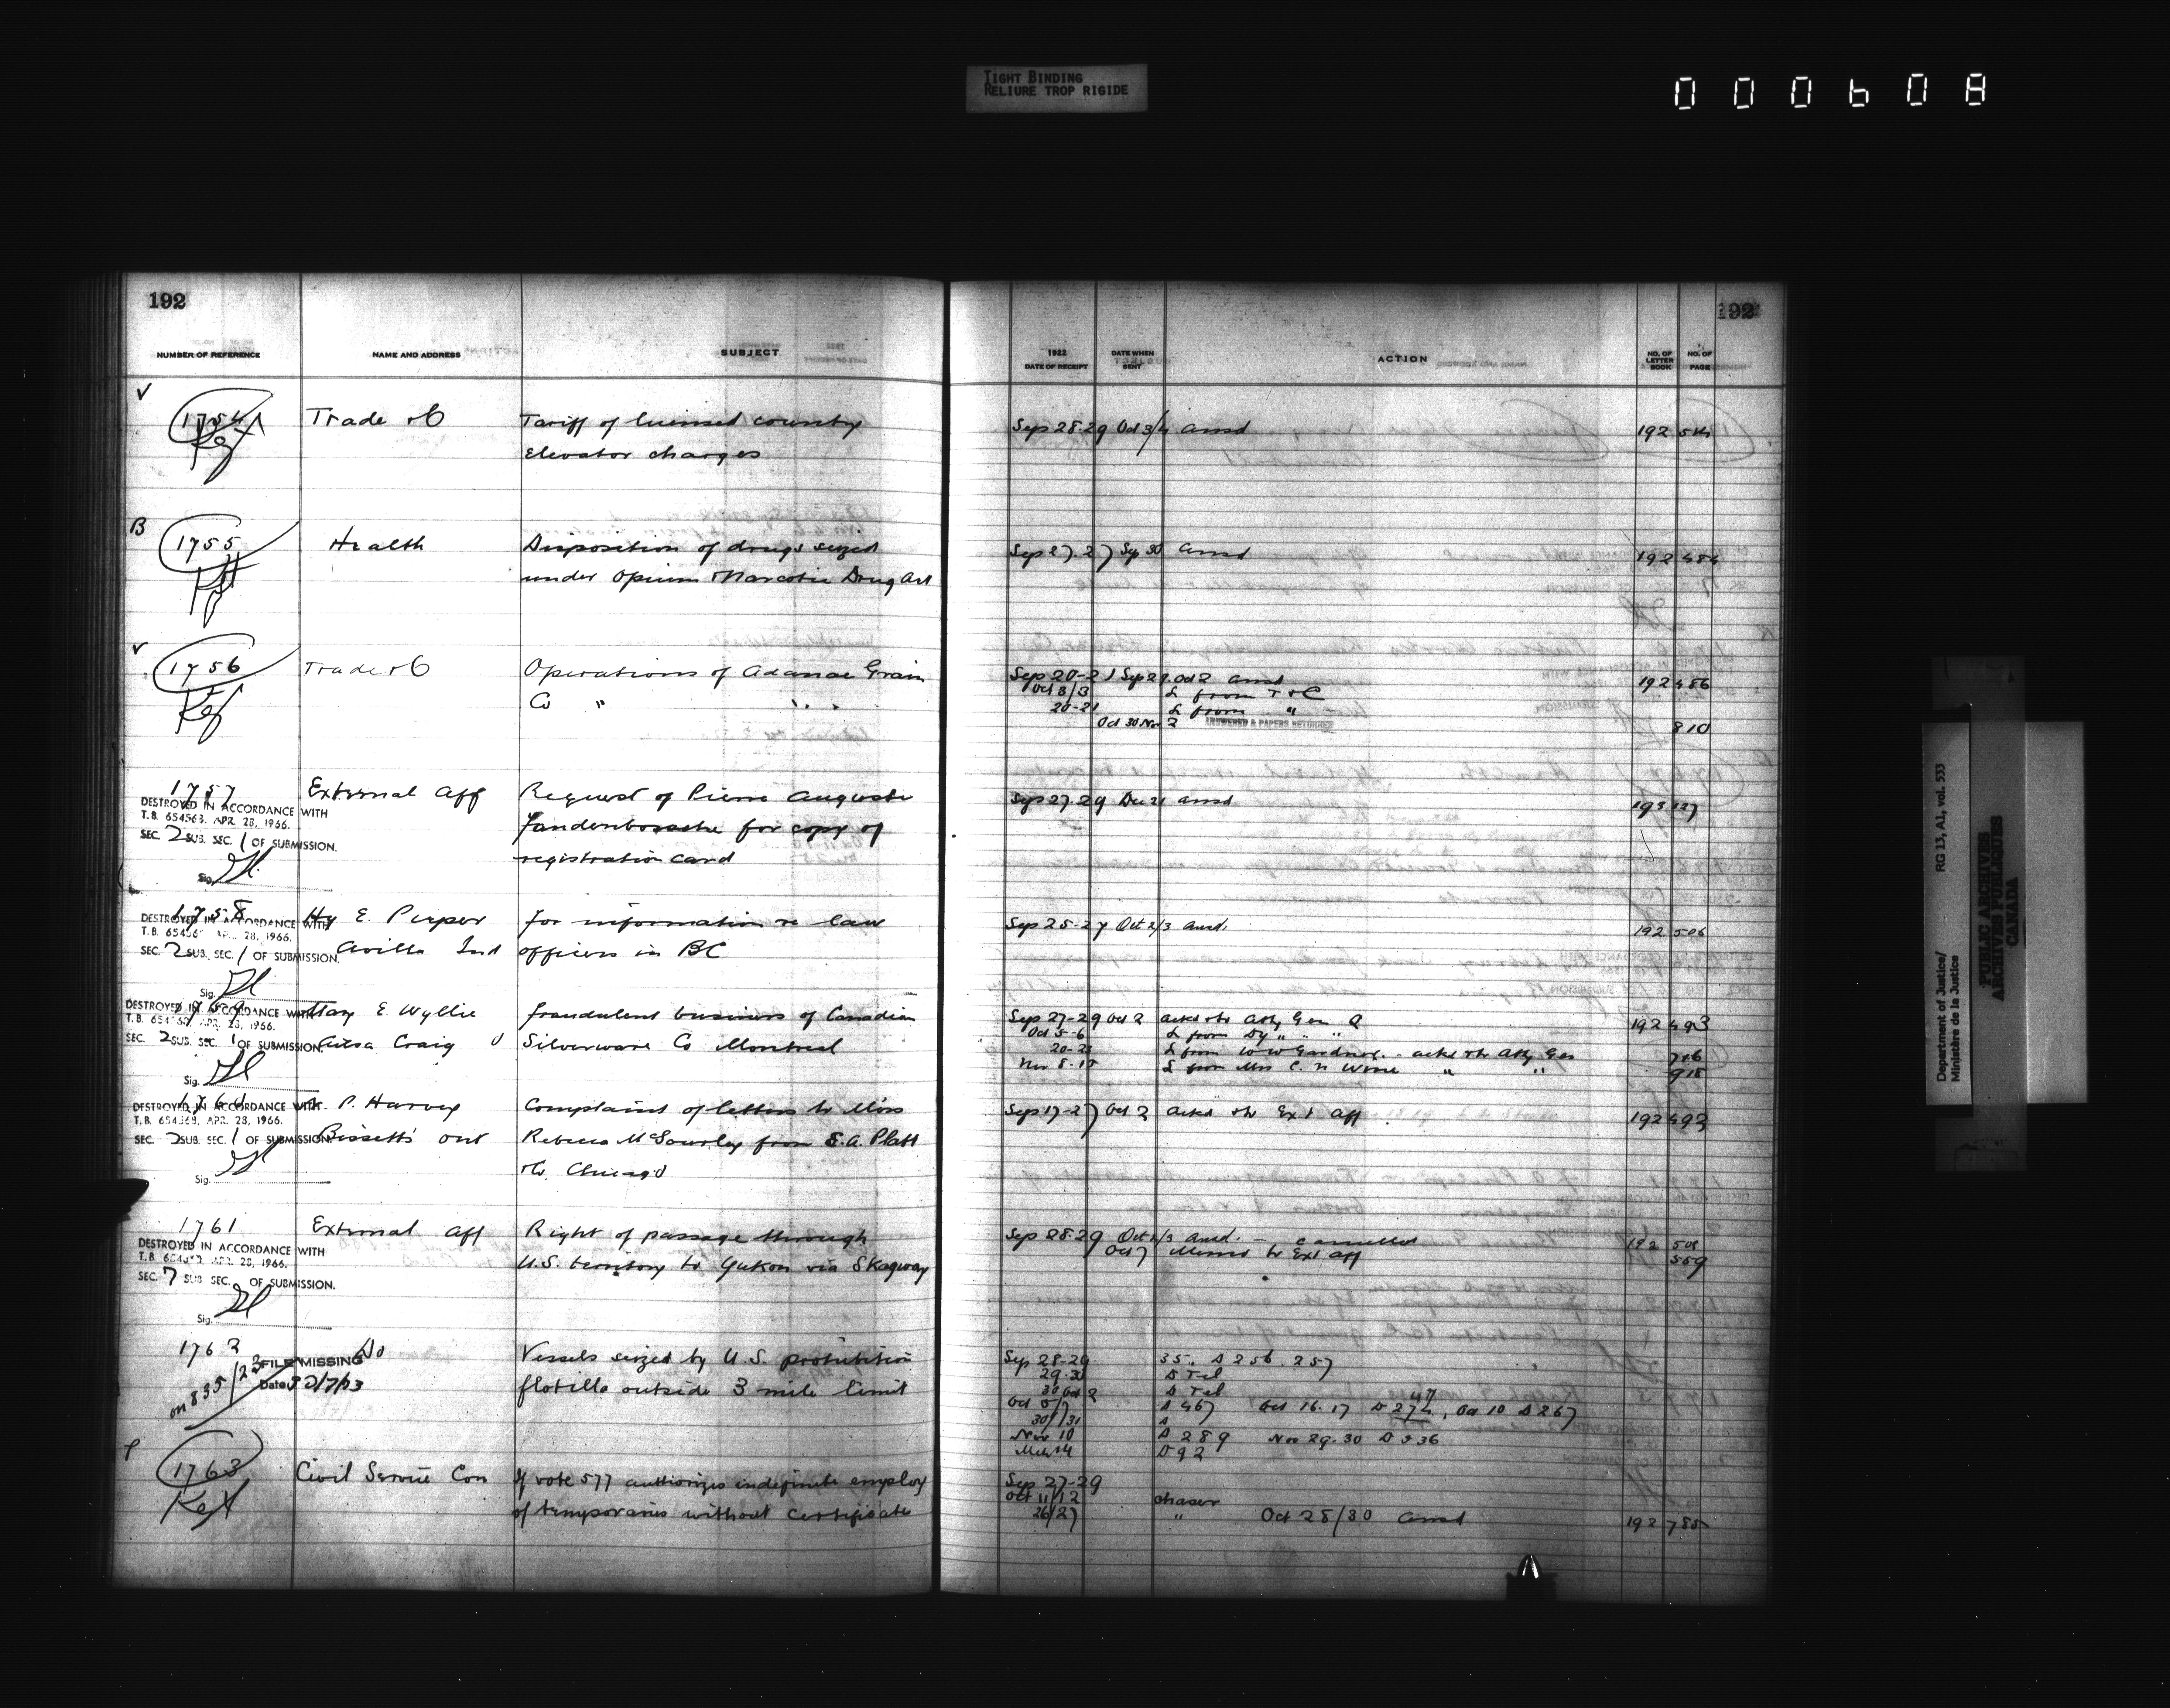 TIGHT BINDING
RELIURE TROP RIGIDE
000608
192
NUMBER OF REFERENCE NAME AND ADDRESS SUBJECT
V
1754 Trade & C Tariff of licensed country
Ref elevator charges
B
1755 Health Disposition of drugs seized
under Opium & Narcotic Drug Act
V
1756 Trade & C Operations of Adanac Grain
Ref Co " " "
1757 External Aff Request of Pierre Auguste
DESTROYED IN ACCORDANCE WITH
T.B. 654563. APR. 28, 1966. Vandenbossche for copy of
SEC. 2 SUB. SEC. 1 OF SUBMISSION.
registration card
Sig.
1758 Hy E. Pieper for information re law
DESTROYED IN ACCORDANCE WITH
T.B. 65456 APR. 28, 1966.
SEC. 2 SUB. SEC. 1 OF SUBMISSION. Avilla Ind officers in BC
Sig.
1759 Mary E. Wyllie fraudulent business of Canadian
DESTROYED IN ACCORDANCE WITH
T.B. 654563 APR. 28, 1966.
SEC. 2 SUB. SEC. 1 OF SUBMISSION. Ailsa Craig O Silverware Co Montreal
Sig.
1760 P. Harvey Complaint of letters to Miss
DESTROYED IN ACCORDANCE WITH
T.B. 654563, APR. 28, 1966.
SEC. 2 SUB. SEC. 1 OF SUBMISSION. Bissett's Ont Rebecca McGourley from S.A. Platt
Sig. Chicago
1761 External Aff Right of passage through
DESTROYED IN ACCORDANCE WITH
T.B. 654563 APR. 28, 1966. U.S. territory to Yukon via Skagway
SEC. 7 SUB SEC. OF SUBMISSION.
Sig.
1762 Do Vessels seized by U.S. prohibition
FILE MISSING
on 835/22 Date flotilla outside 3 mile limit
P
1763 Civil Service Con If vote 577 authorizes indefinite employ
of temporaries without certificate
192
1922
DATE OF RECEIPT DATE WHEN SENT ACTION NO. OF LETTER BOOK NO. OF PAGE
Sep 28-29 Oct 3/4 Ansd 192 514
Sep 27-27 Sep 30 Ansd 192 484
Sep 20-21 Sep 29 Oct 2 ansd 192 486
Oct 3/3 L from T & C
20-21 L from "
Oct 30 Nov 2 ANSWERED & PAPERS RETURNED 810
Sep 27-29 Dec 21 ansd 193 127
Sep 25-27 Oct 2/3 ansd. 192 506
Sep 27-29 Oct 2 ackd & to Atty Gen Q 192 493
Oct 5-6 L from Dy " "
20-23 L from W W Gardner - ackd & to Atty Gen 716
Nov 8-15 L from Mrs C. N " " 918
Sep 17-27 Oct 2 ackd & to Ext Aff 192 493
Sep 28-29 Oct 2/3 ansd. - cancelled 192 508
Oct 7 Memo to Ext Aff 559
Sep 28-29 35. D 256. 257
29-30 D Tel
30 Oct 2 D Tel
Oct 5/7 D 467 Oct 16.17 D 274, Oct 10 D 267
30/31 D
Nov 10 D 289 Nov 29.30 D 336
Mch 14 D 92
Sep 27-29
Oct 11/12 chaser
26/27 " Oct 28/30 Ansd 192 785
Department of Justice/
Ministère de la Justice
RG 13, A1, vol. 533
PUBLIC ARCHIVES
ARCHIVES PUBLIQUES
CANADA